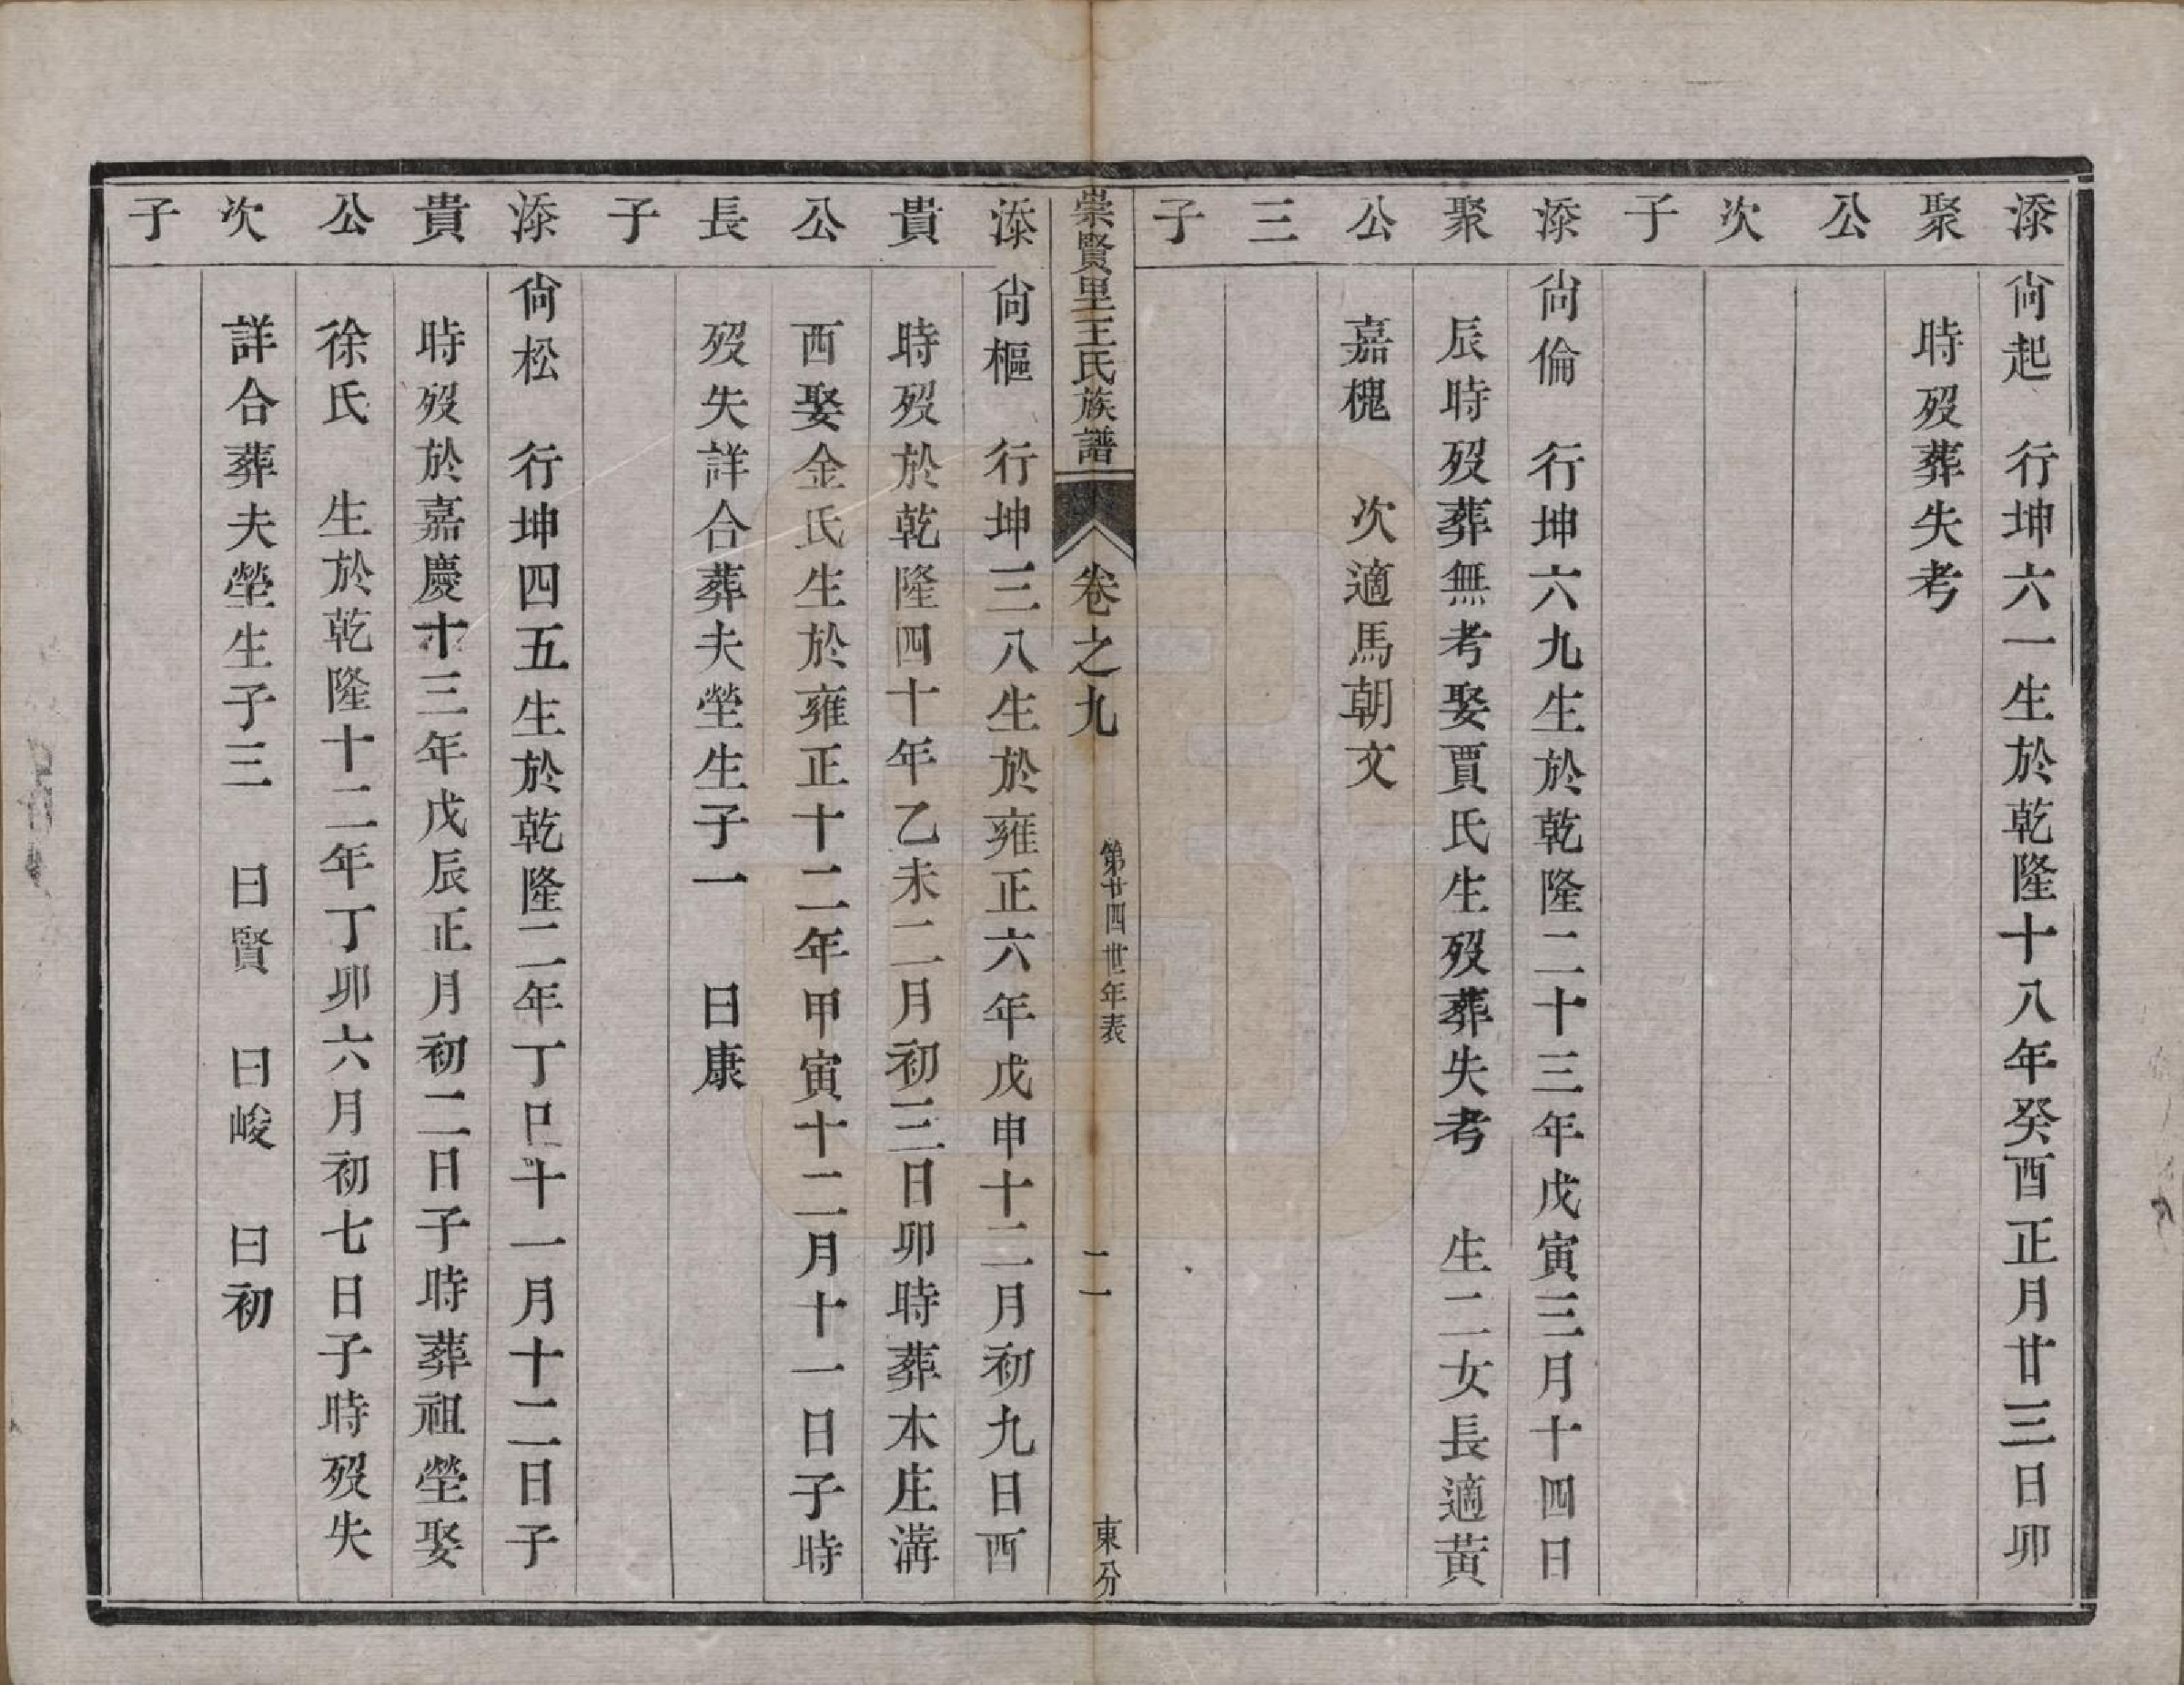 添聚公次子
尙起　行坤六一生於乾隆十八年癸酉正月廿三日卯
時歿葬失考
添聚公三子
尙倫　行坤六九生於乾隆二十三年戊寅三月十四日
辰時歿葬無考娶賈氏生歿葬失考　生二女長適黃
嘉槐　次適馬朝文
崇賢里王氏族譜　卷之九　第廿四世年表　二一　東分
添貴公長子
尙樞　行坤三八生於雍正六年戊申十二月初九日酉
時歿於乾隆四十年乙未二月初三日卯時葬本庄溝
西娶金氏生於雍正十二年甲寅十二月十一日子時
歿失詳合葬夫塋生子一　曰康
添貴公次子
尙松　行坤四五生於乾隆二年丁巳十一月十二日子
時歿於嘉慶十三年戊辰正月初二日子時葬祖塋娶
徐氏　生於乾隆十二年丁卯六月初七日子時歿失
詳合葬夫塋生子三　曰賢　曰峻　曰初